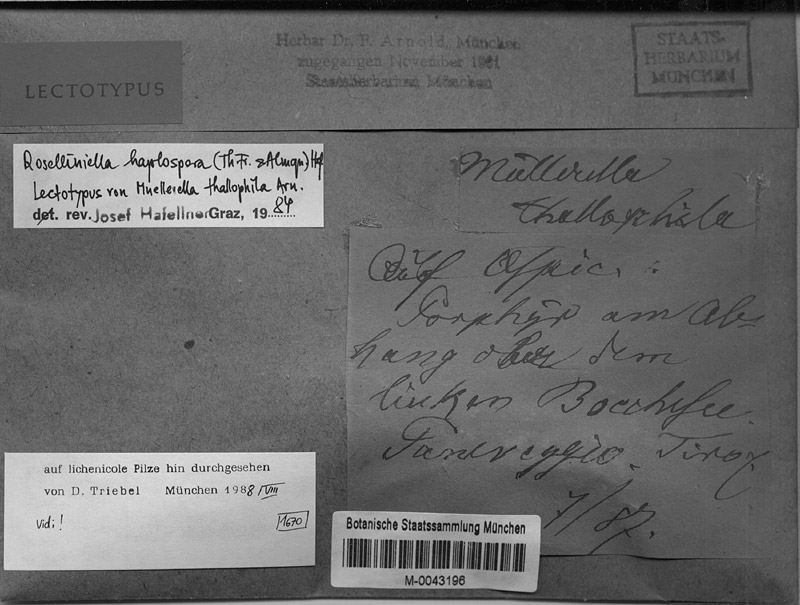 LECTOTYPUS
Herbar Dr. F. Arnold, München
zugegangen November 1981
Staatsherbarium München
STAATS-
HERBARIUM
MÜNCHEN
Roselliniella haplospora (Th. Fr. & Almqu.) Haf
Lectotypus von Muellerella thallophila Arn.
det. rev. Josef Hafellner Graz, 1984
Müllerella
thallophila
Auf Aspic. :
Porphyr am Ab-
hang ober dem
linken Bocchesee.
Paneveggio. Tirol.
7/87.
auf lichenicole Pilze hin durchgesehen
von D. Triebel München 1988/VIII
Vidi!
1670
Botanische Staatssammlung München
M-0043196